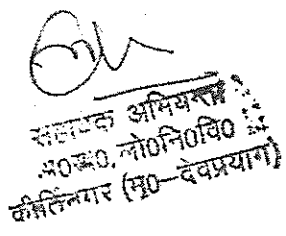 सहायक अभियन्ता
अ०ख०, लो०नि०वि०
कीर्तिनगर (मु०–देवप्रयाग)